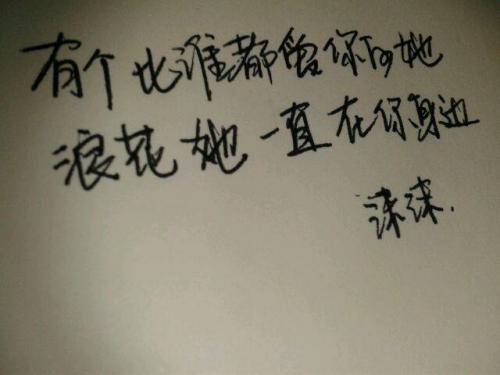 有个比谁都爱你的她
浪花她一直在你身边
沫沫.